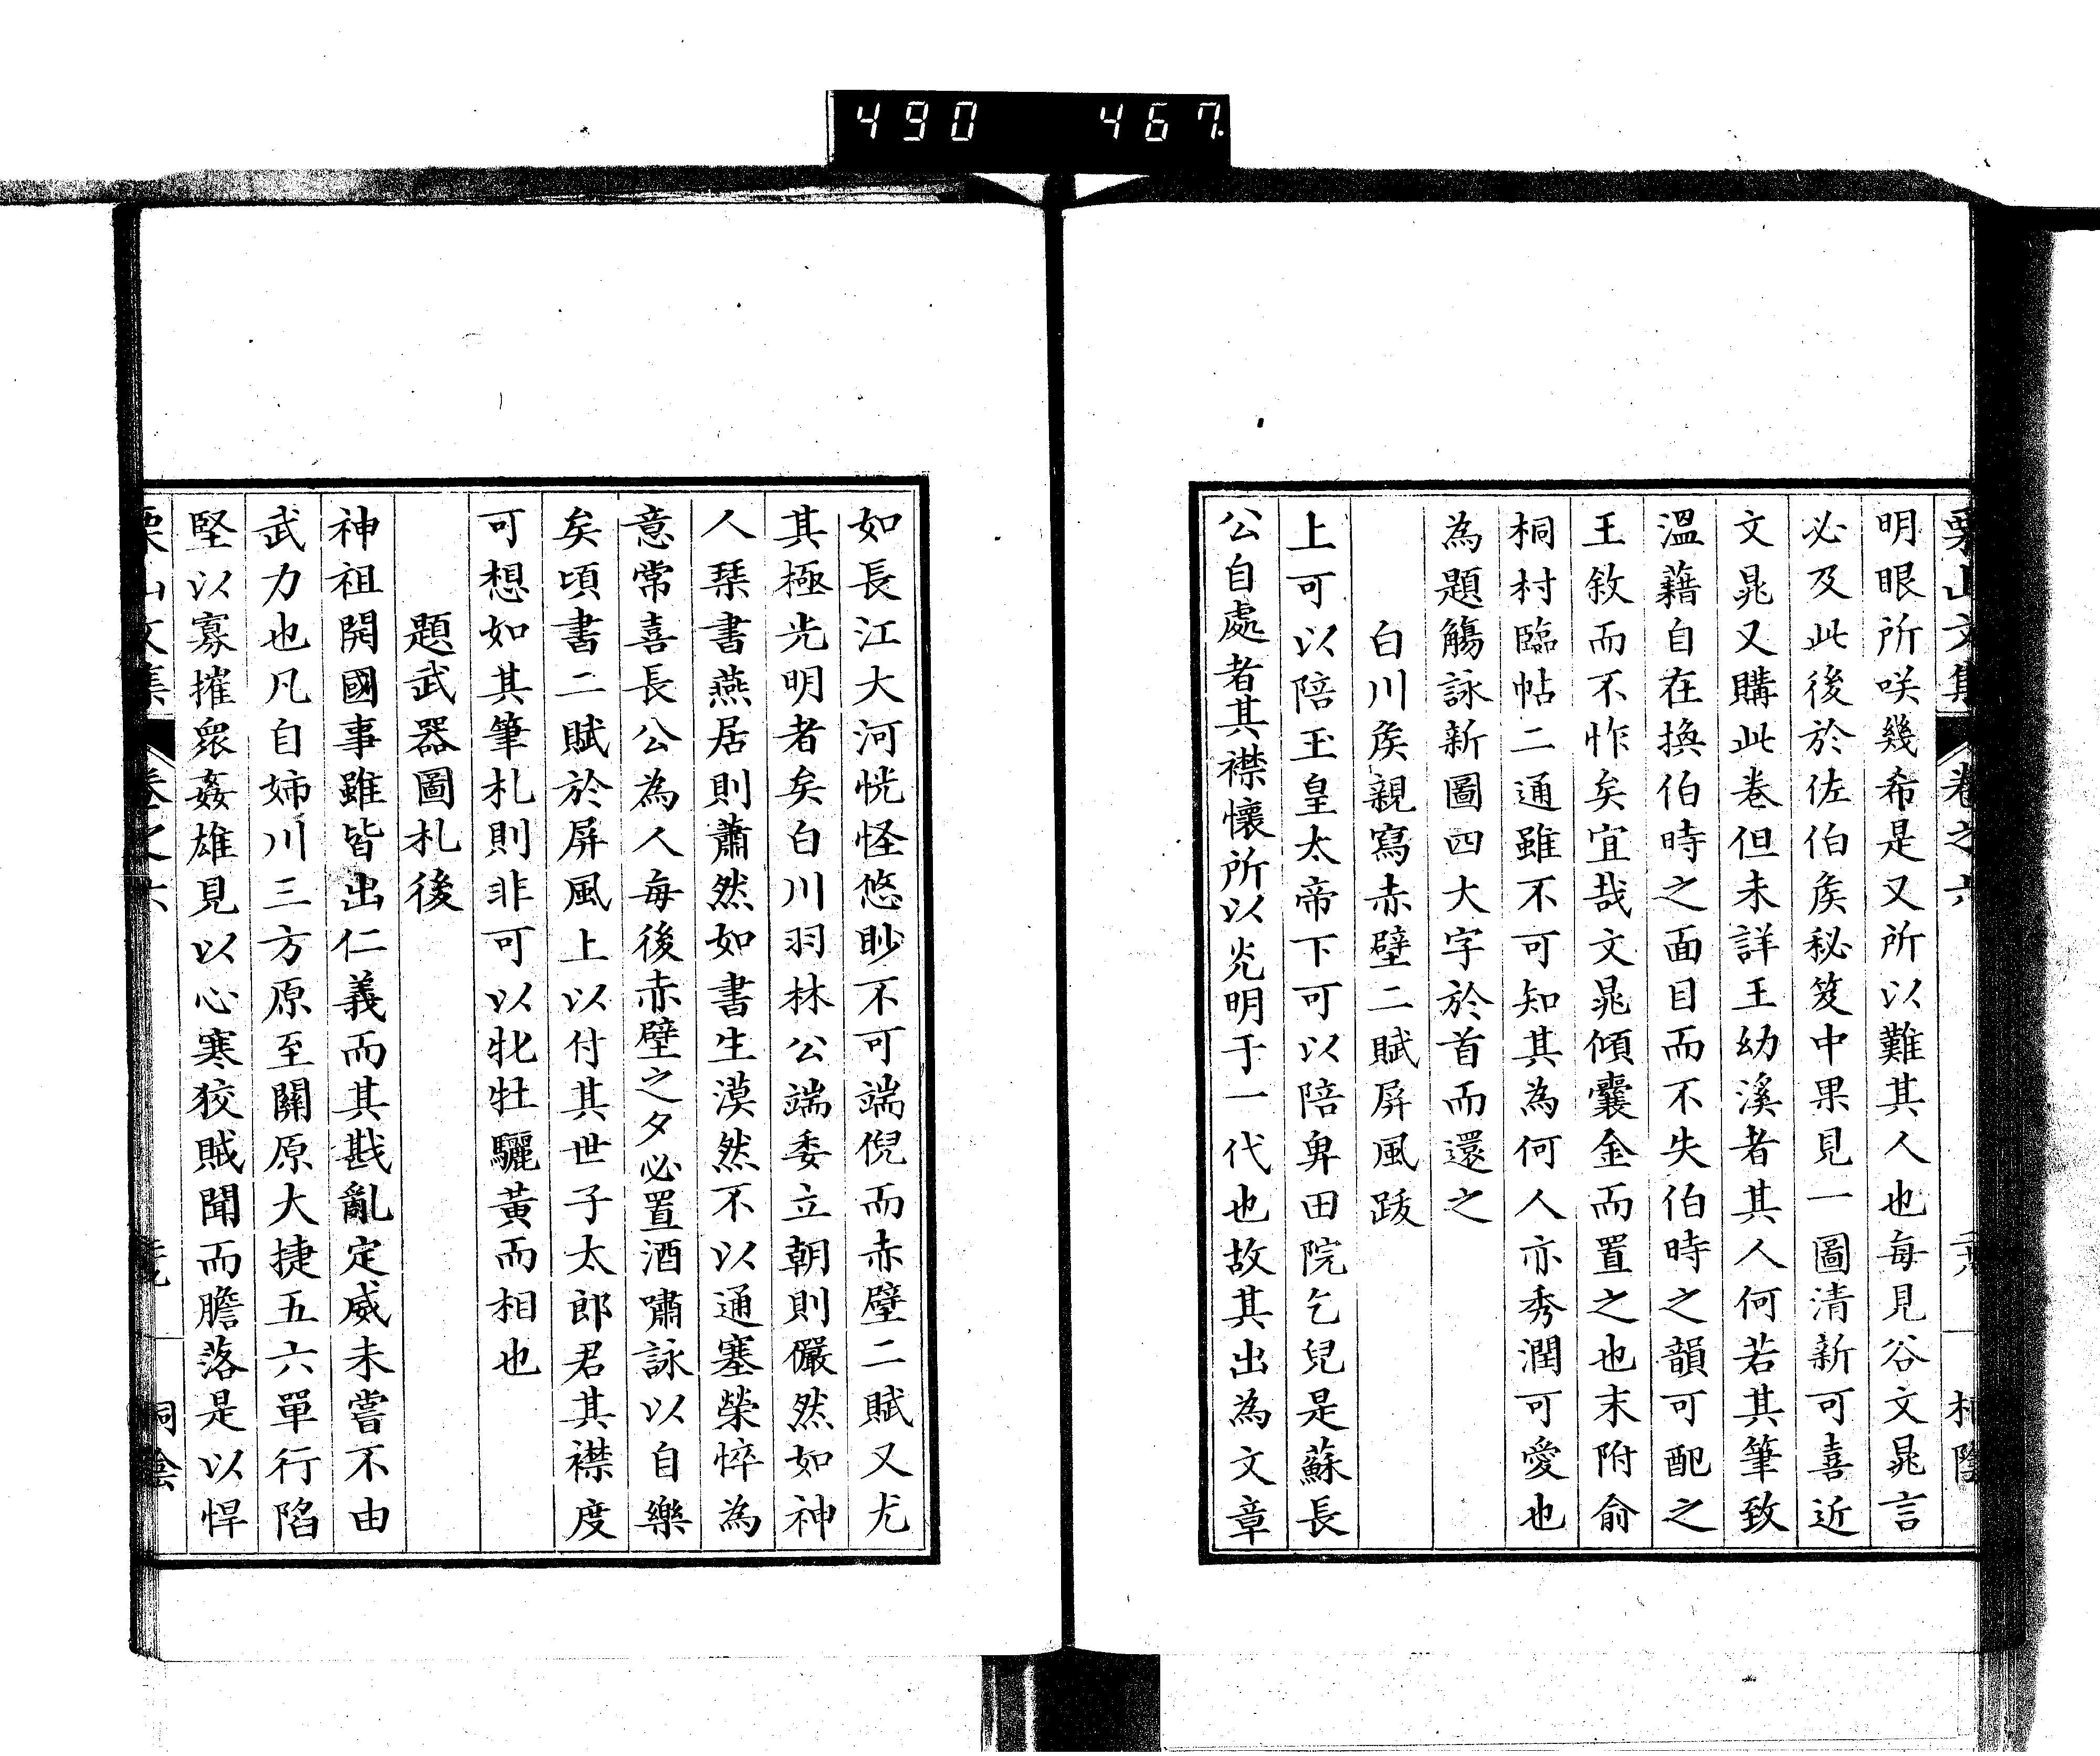 490 467
栗山文集 卷之六
明眼所咲幾希是又所以難其人也每見谷文晁言
必及此後於佐伯矦秘笈中果見一圖清新可喜近
文晁又購此卷但未詳王幼溪者其人何若其筆致
溫藉自在換伯時之面目而不失伯時之韻可配之
王敘而不怍矣宜哉文晁傾囊金而置之也末附俞
桐村臨帖二通雖不可知其為何人亦秀潤可愛也
為題觴詠新圖四大字於首而還之
白川矦親寫赤壁二賦屏風跋
上可以陪玉皇太帝下可以陪卑田院乞兒是蘇長
公自處者其襟懷所以光明于一代也故其出為文章
如長江大河恍怪悠眇不可端倪而赤壁二賦又尤
其極光明者矣白川羽林公端委立朝則儼然如神
人琹書燕居則蕭然如書生漠然不以通塞榮悴為
意常喜長公為人每後赤壁之夕必置酒嘯詠以自樂
矣頃書二賦於屏風上以付其世子太郎君其襟度
可想如其筆札則非可以牝牡驪黃而相也
題武器圖札後
神祖開國事雖皆出仁義而其戡亂定威未嘗不由
武力也凡自姉川三方原至關原大捷五六單行陷
堅以寡摧衆姦雄見以心寒狡賊聞而膽落是以悍
栗山文集 卷之六